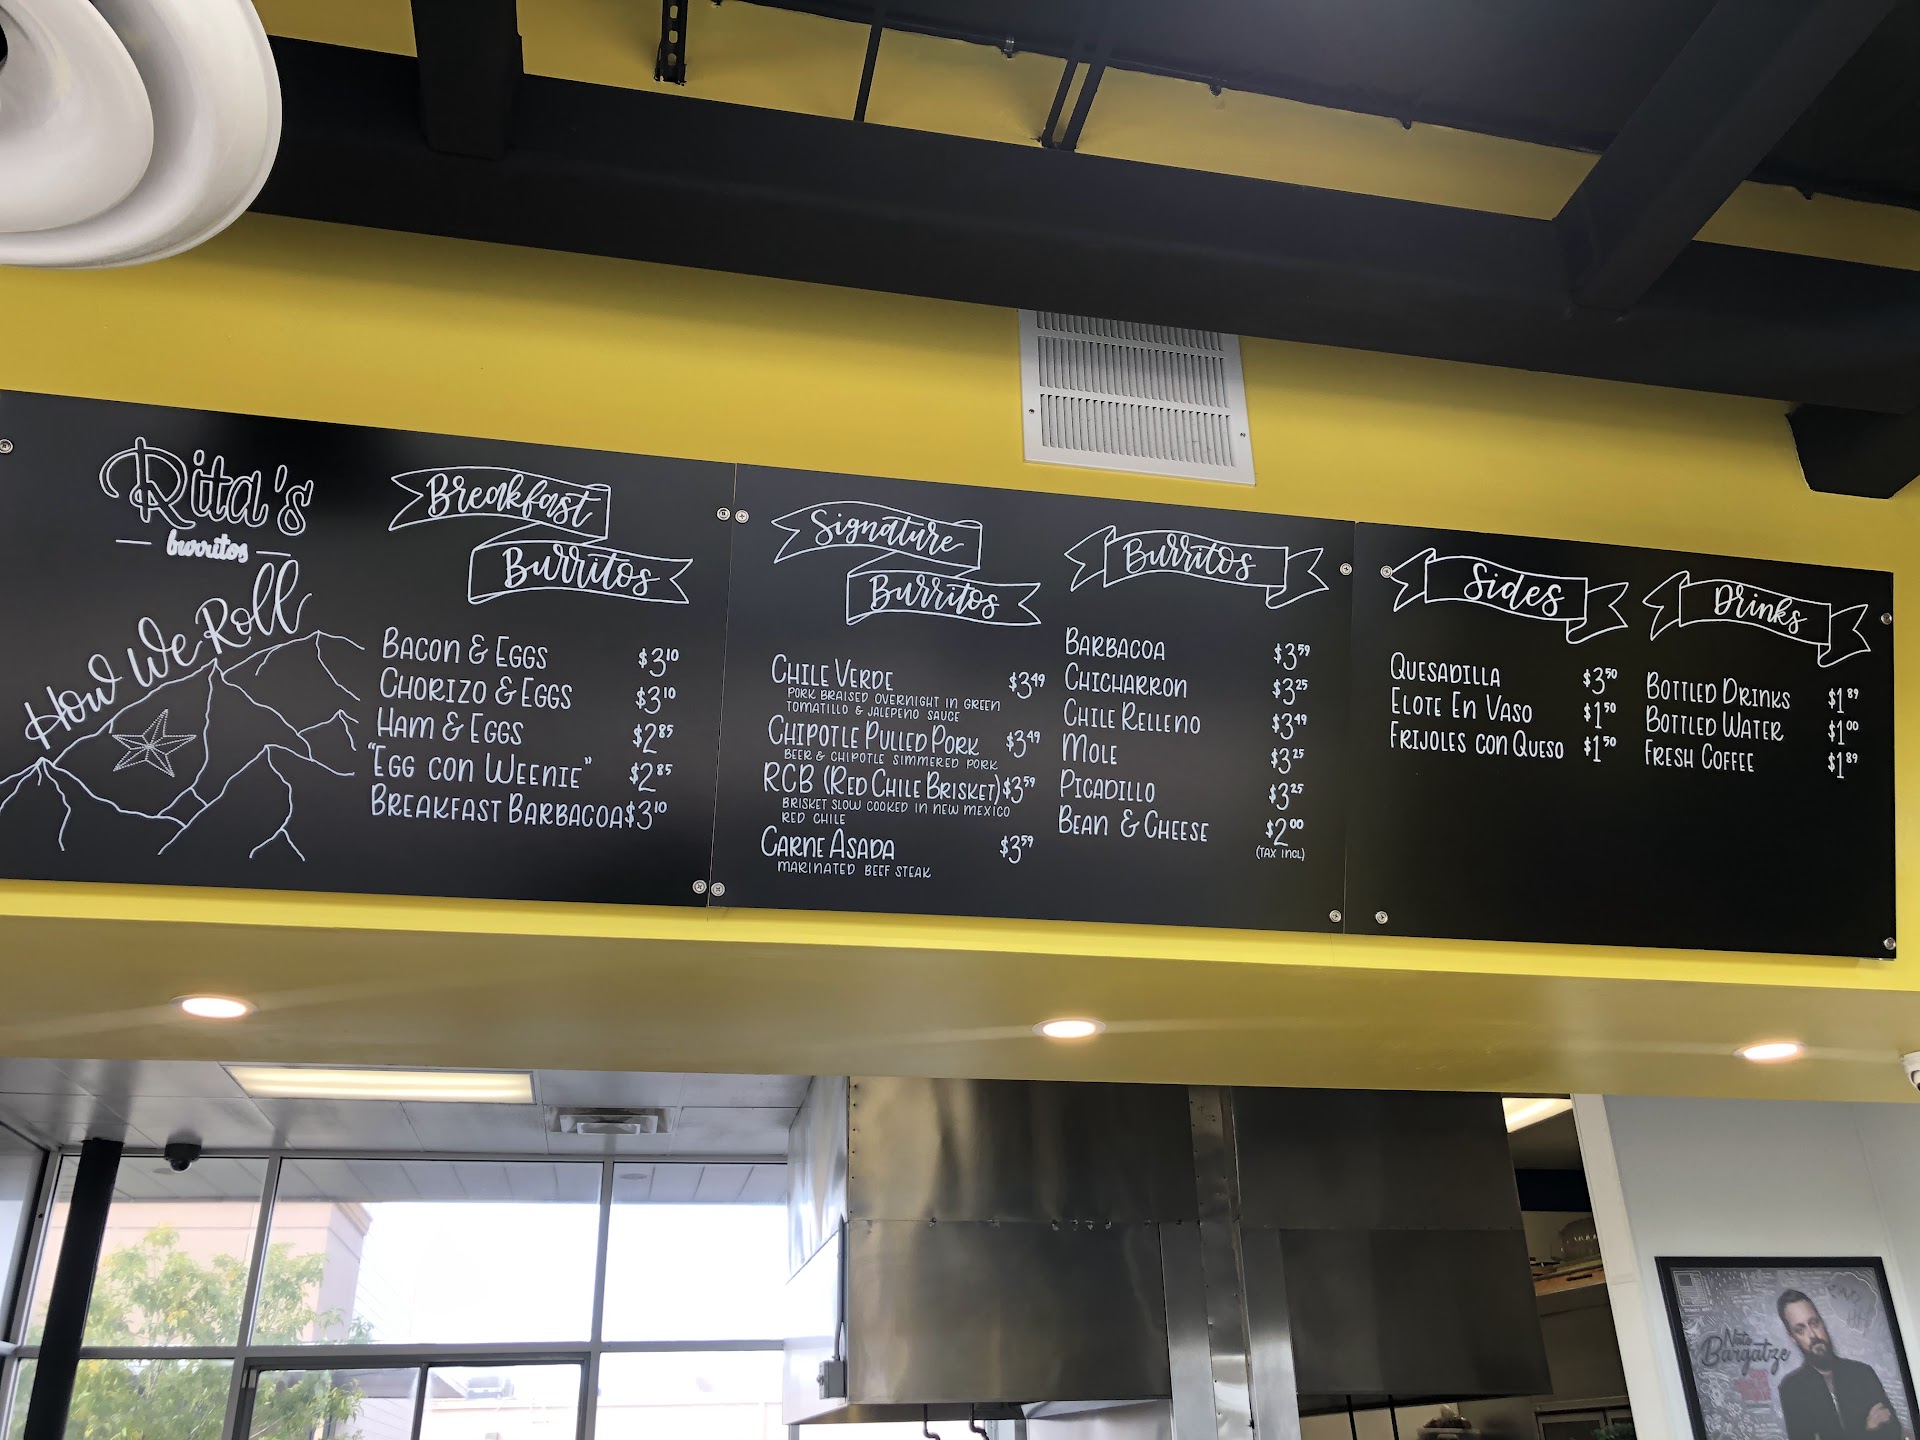 Rita's
burritos
How We Roll
Breakfast
Burritos
Bacon & Eggs $3.10
Chorizo & Eggs $3.10
Ham & Eggs $2.85
"Egg con Weenie" $2.85
Breakfast Barbacoa $3.10
Signature
Burritos
Chile Verde $3.49
Pork braised overnight in green
tomatillo & jalepeno sauce
Chipotle Pulled Pork $3.49
Beer & chipotle simmered pork
RCB (Red Chile Brisket) $3.59
Brisket slow cooked in New Mexico
red chile
Carne Asada $3.59
Marinated beef steak
Burritos
Barbacoa $3.59
Chicharron $3.25
Chile Relleno $3.49
Mole $3.25
Picadillo $3.25
Bean & Cheese $2.00
(tax incl)
Sides
Quesadilla $3.50
Elote En Vaso $1.50
Frijoles con Queso $1.50
Drinks
Bottled Drinks $1.89
Bottled Water $1.00
Fresh Coffee $1.89
Nate
Bargatze